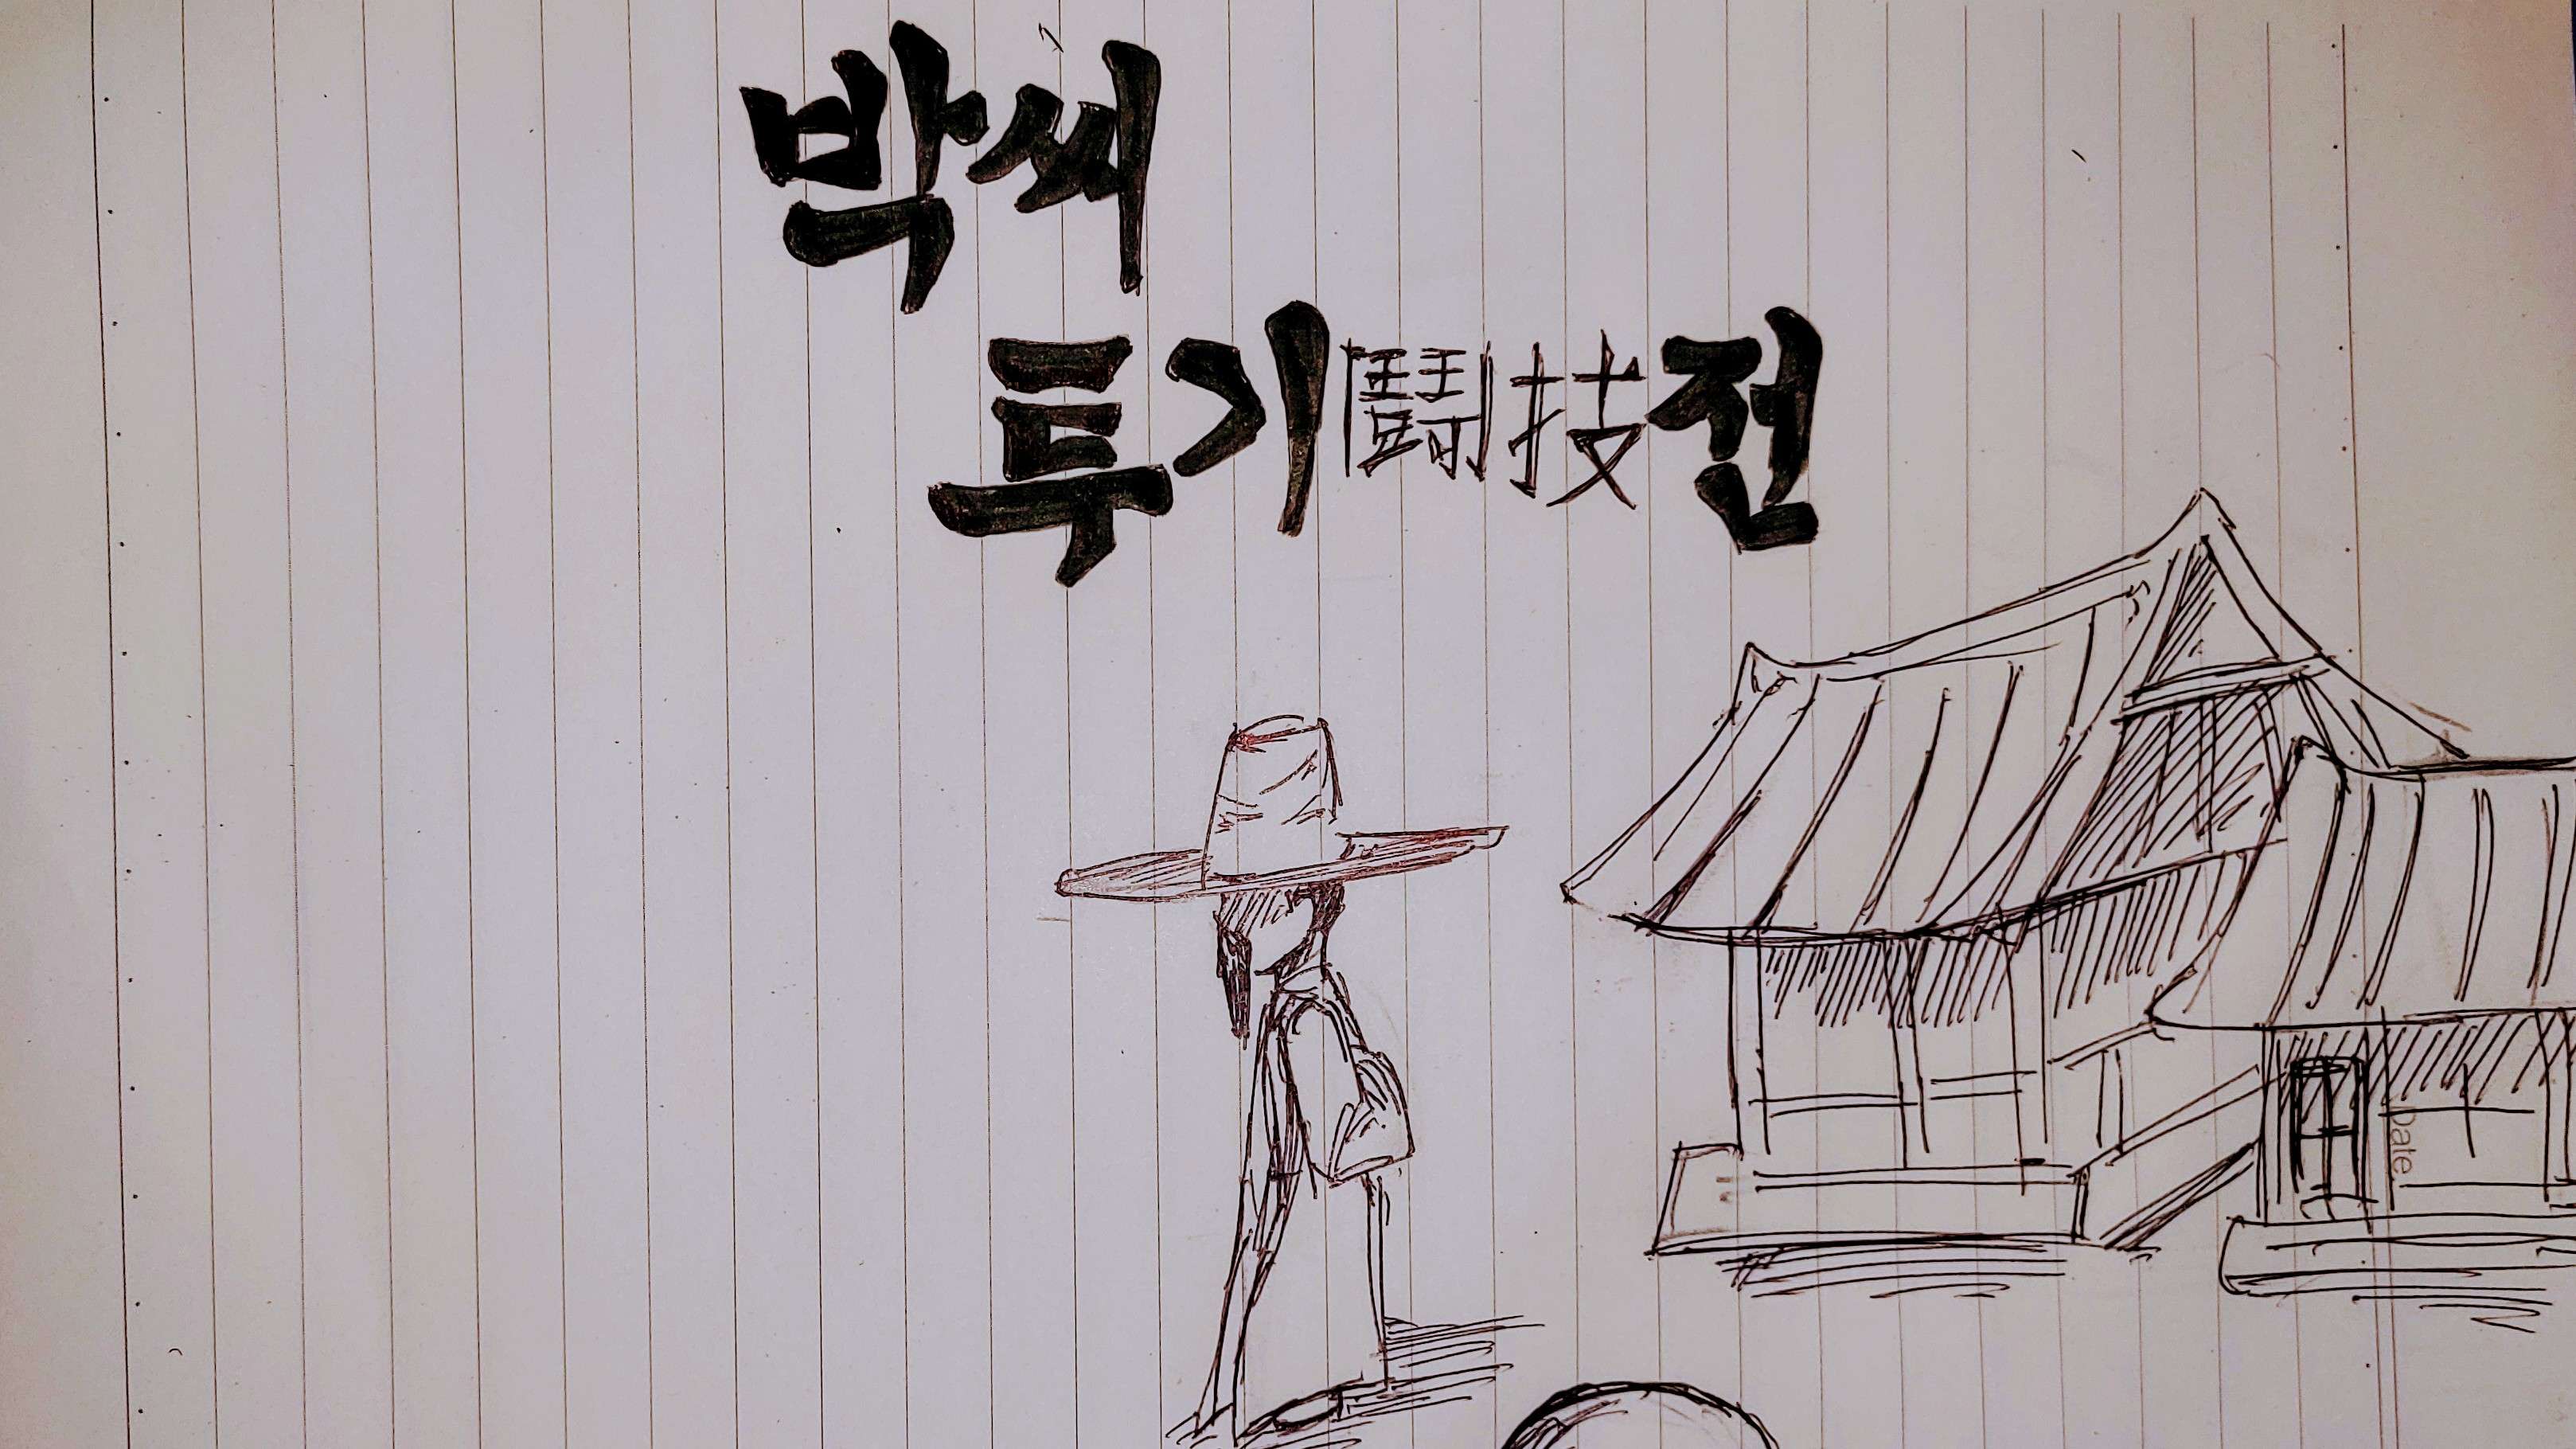 박씨
투기鬪技전
Date.